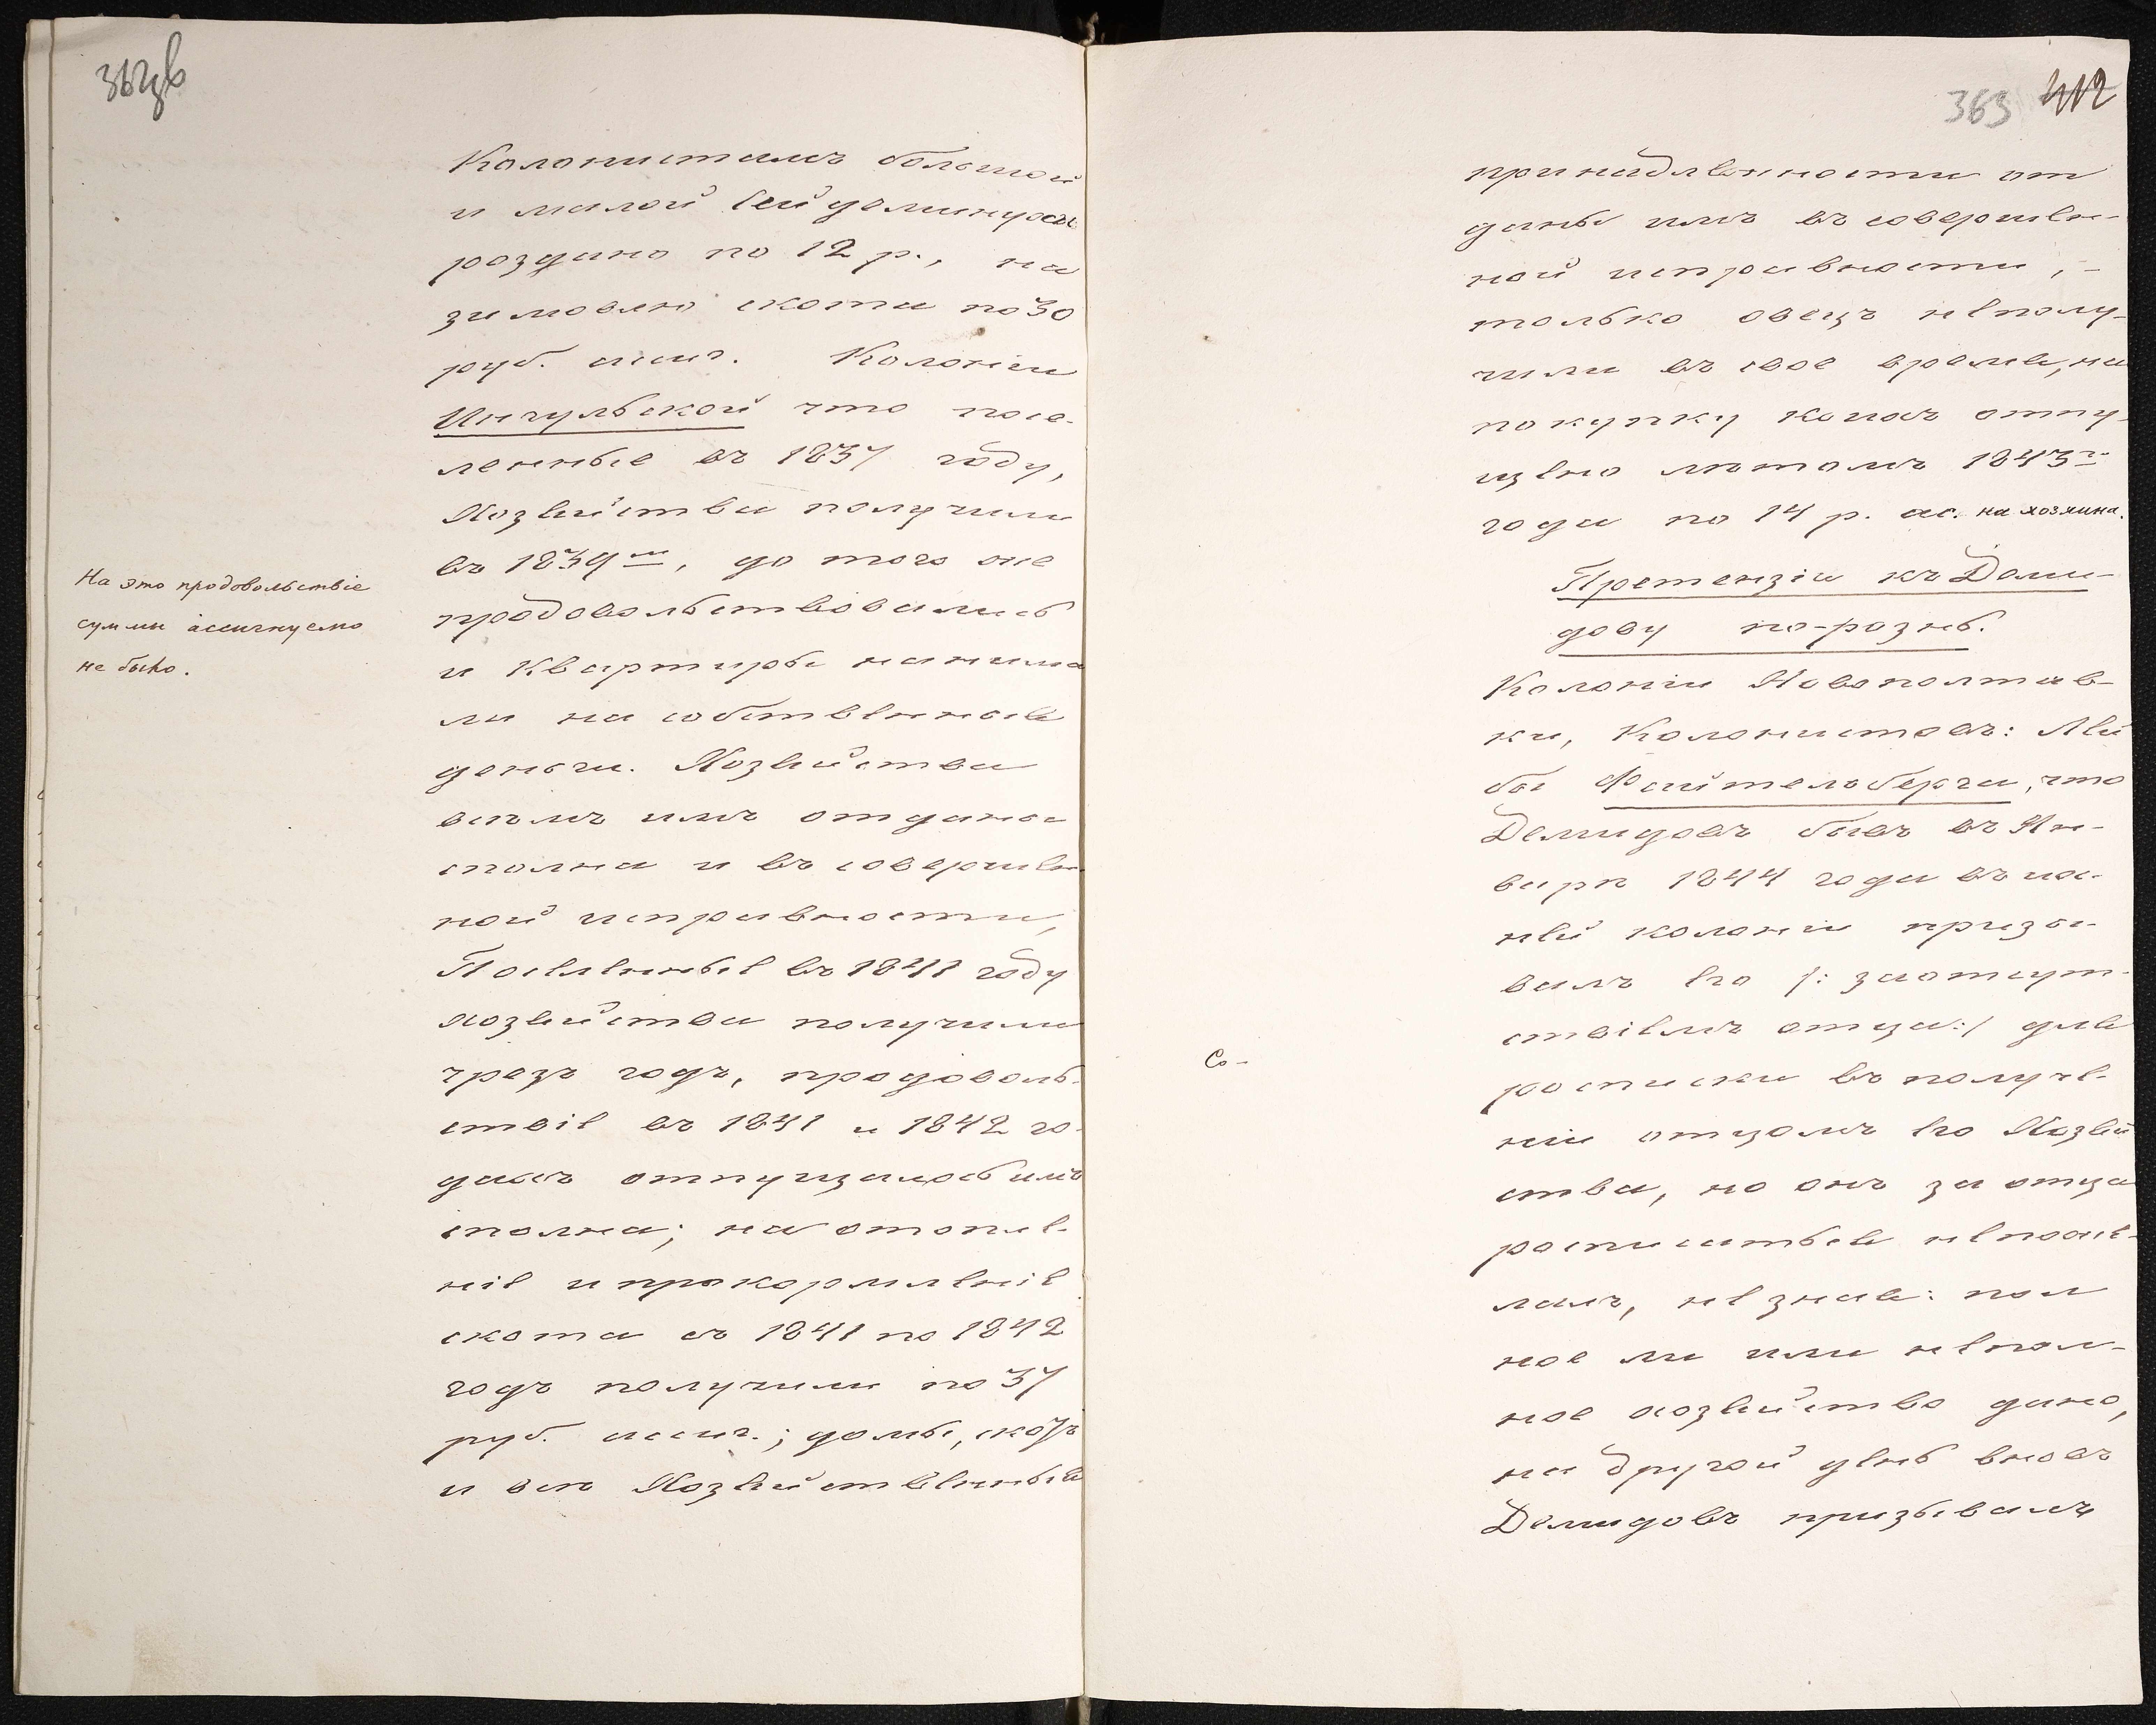 Колонистамъ большой
и малой Сейдеминухъ
роздано по 12 р., на
зимовлю скота по 30
руб. ассиг. Колоніи
Ингульской что посе-
ленные въ 1837 году,
Хозяйства получили
въ 1839м, до того же
продовольствовались
и Квартиры нанима
ли на собственныя
деньги. Хозяйства
всѣмъ имъ отданы
сполна и въ совершен
ной исправности,
Поселенные въ 1841 году
хозяйства получили
чрезъ годъ, продоволь-
ствіе въ 1841 и 1842 го-
дахъ отпущалось имъ
сполна; на отопле-
ніе и прокормленіе
скота съ 1841 по 1842
годъ получили по 37
руб. ассиг.; домы, скотъ
и всѣ Хозяйственныя
На это продовольствіе
суммы ассигнуемо
не было.
363 412
принадлежности от
даны имъ въ совершен-
ной исправности, -
только овецъ неполу-
чили въ свое время, на
покупку коихъ отпу-
щено лѣтомъ 1843го
года по 14 р. ас. на хозяина.
Претензіи къ Деми-
дову по-рознь.
Колоніи Новополтав-
ки, Колонистовъ: Лей
бы Файтельберга, что
Демидовъ бывъ въ Ян-
варѣ 1844 года въ на-
ней колоніи призы-
валъ его /: заотсут-
ствіемъ отца :/ для
росписки въ получе-
ніи отцомъ его Хозяй
ства, но онъ за отца
росписаться непоже-
лалъ, не зная: пол
ное ли или непол-
ное хозяйство дано,
на другой день вновь
Демидовъ призывалъ
Со-